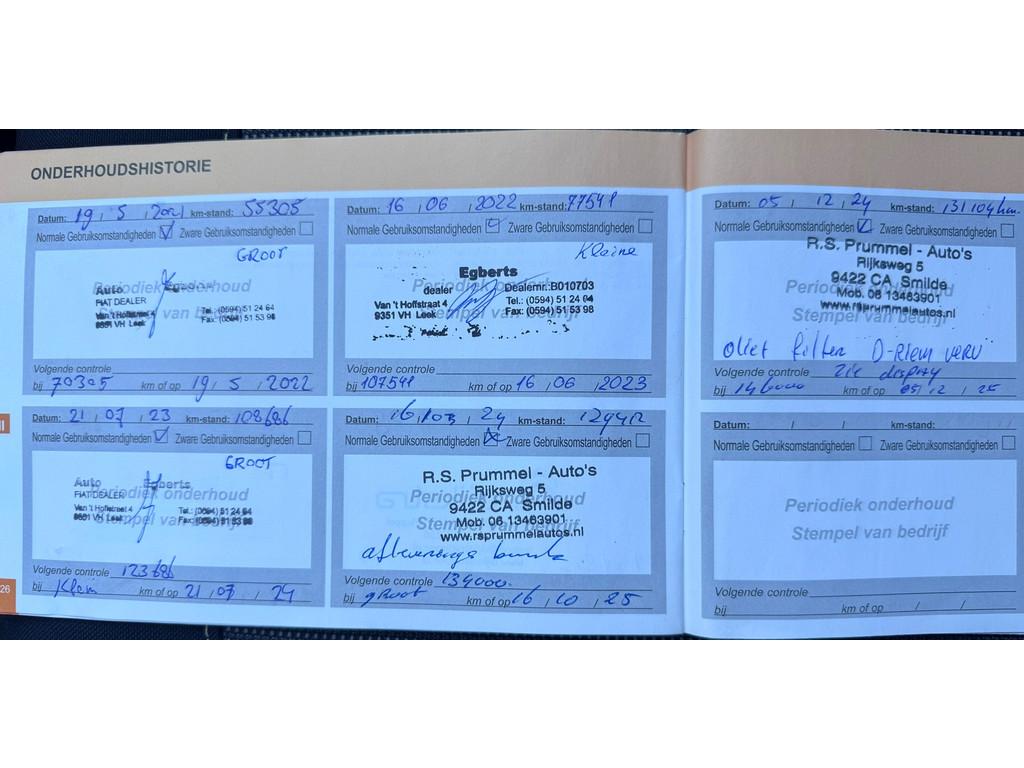 ONDERHOUDSHISTORIE
Datum: 19 / 5 / 2021 km-stand: 55305
Normale Gebruiksomstandigheden ☑ Zware Gebruiksomstandigheden ☐
GROOT
Auto Egberts
FIAT DEALER
Van 't Hoffstraat 4 Tel.: (0594) 51 24 64
9351 VH Leek Fax: (0594) 51 53 98
Periodiek onderhoud
Volgende controle
bij 70305 km of op 19 / 5 / 2022
Datum: 16 / 06 / 2022 km-stand: 77541
Normale Gebruiksomstandigheden ☑ Zware Gebruiksomstandigheden ☐
Kleine
Egberts
dealer Dealernr.:B010703
Van 't Hoffstraat 4 Tel.: (0594) 51 24 64
9351 VH Leek Fax: (0594) 51 53 98
Volgende controle
bij 107541 km of op 16 / 06 / 2023
Datum: 21 / 07 / 23 km-stand: 108686
Normale Gebruiksomstandigheden ☑ Zware Gebruiksomstandigheden ☐
GROOT
Auto Egberts
FIAT DEALER
Periodiek onderhoud
Van 't Hoffstraat 4 Tel.: (0594) 51 24 64
9351 VH Leek Fax: (0594) 51 53 98
Stempel van bedrijf
Volgende controle 123686
bij Klein km of op 21 / 07 / 24
Datum: 16 / 03 / 24 km-stand:
Normale Gebruiksomstandigheden ☒ Zware Gebruiksomstandigheden ☐
R.S. Prummel - Auto's
Rijksweg 5
Periodiek onderhoud
9422 CA Smilde
Mob. 06 13463901
Stempel van bedrijf
www.rsprummelautos.nl
afleverings beurt
Volgende controle 134000.
bij groot km of op 16 / 10 / 25
26
Datum: 05 / 12 / 24 km-stand: 131104km.
Normale Gebruiksomstandigheden ☑ Zware Gebruiksomstandigheden ☐
R.S. Prummel - Auto's
Rijksweg 5
9422 CA Smilde
Periodiek onderhoud
Mob. 06 13463901
www.rsprummelautos.nl
Stempel van bedrijf
filter D-Riem verv
Volgende controle zie display
bij 146000 km of op 05 / 12 / 25
Datum: / / km-stand:
Normale Gebruiksomstandigheden ☐ Zware Gebruiksomstandigheden ☐
Periodiek onderhoud
Stempel van bedrijf
Volgende controle
bij km of op / /